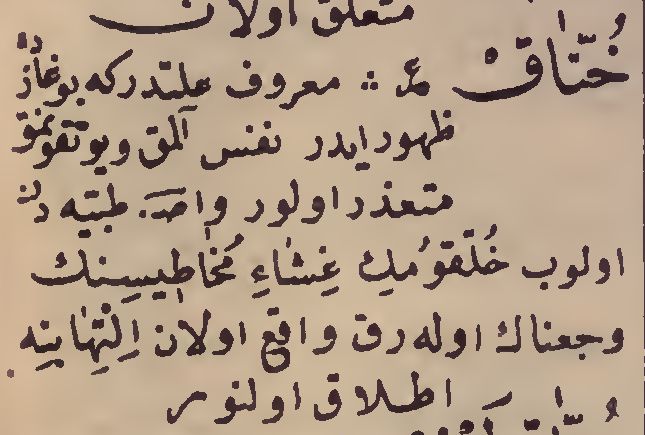 متعلق اولان
خُنّاق ع ∴ معروف علتدركه بوغازده
ظهور ايدر نفس آلمق ويوتقونمق
متعذر اولور واصـ طبيه دن
اولوب حُلْقُومُك غِشَاءِ مُخَاطِيسِنك
وجعناك اوله رق واقع اولان اِلْتِهَابِنِه
اطلاق اولنور